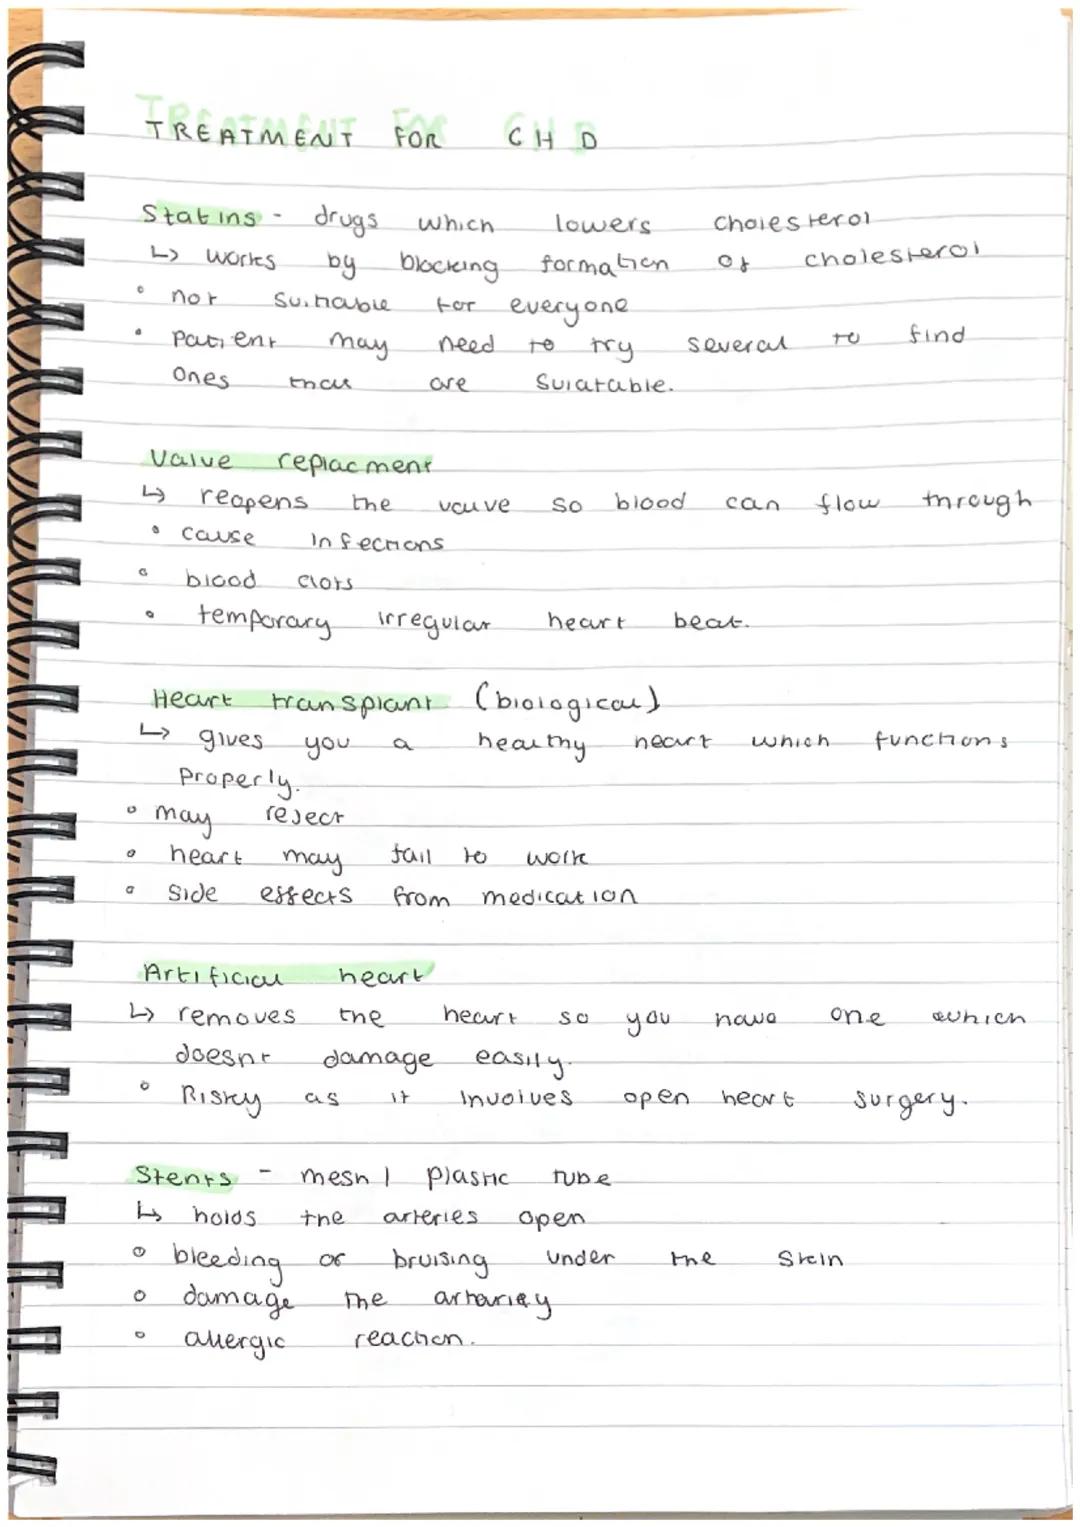 TREATMENT FOR CHD
Statins - drugs which lowers cholesterol
↳ works by blocking formation of cholesterol
• not suitable for everyone
• patient may need to try several to find
ones that are suiatable.
Valve replacment
↳ reopens the valve so blood can flow through
• cause infections
• blood clots
• temporary irregular heart beat.
Heart transplant (biological)
↳ gives you a healthy heart which functions
properly.
• may reject
• heart may fail to work
• side effects from medication
Artificial heart
↳ removes the heart so you have one which
doesnt damage easily.
• Risky as it involves open heart surgery.
Stents - mesh / plastic tube
↳ holds the arteries open
• bleeding or bruising under the skin
• damage the
• allergic reaction.